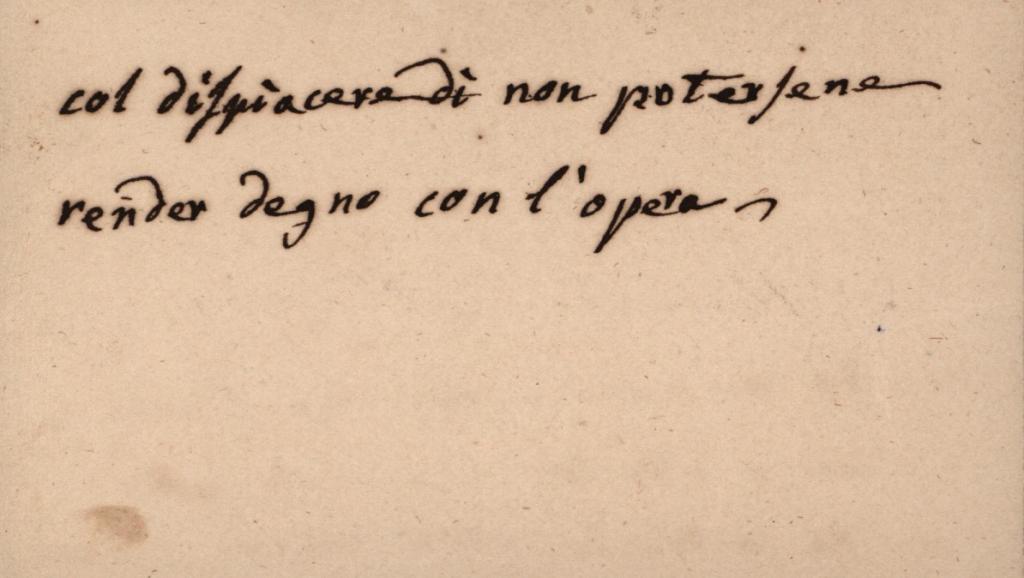 col dispiacere di non potersene
render degno con l'opera